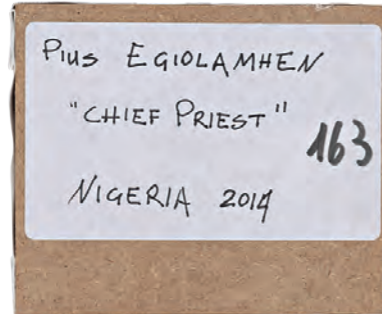 Pius EGIOLAMHEN
"CHIEF PRIEST"
163
NIGERIA 2014